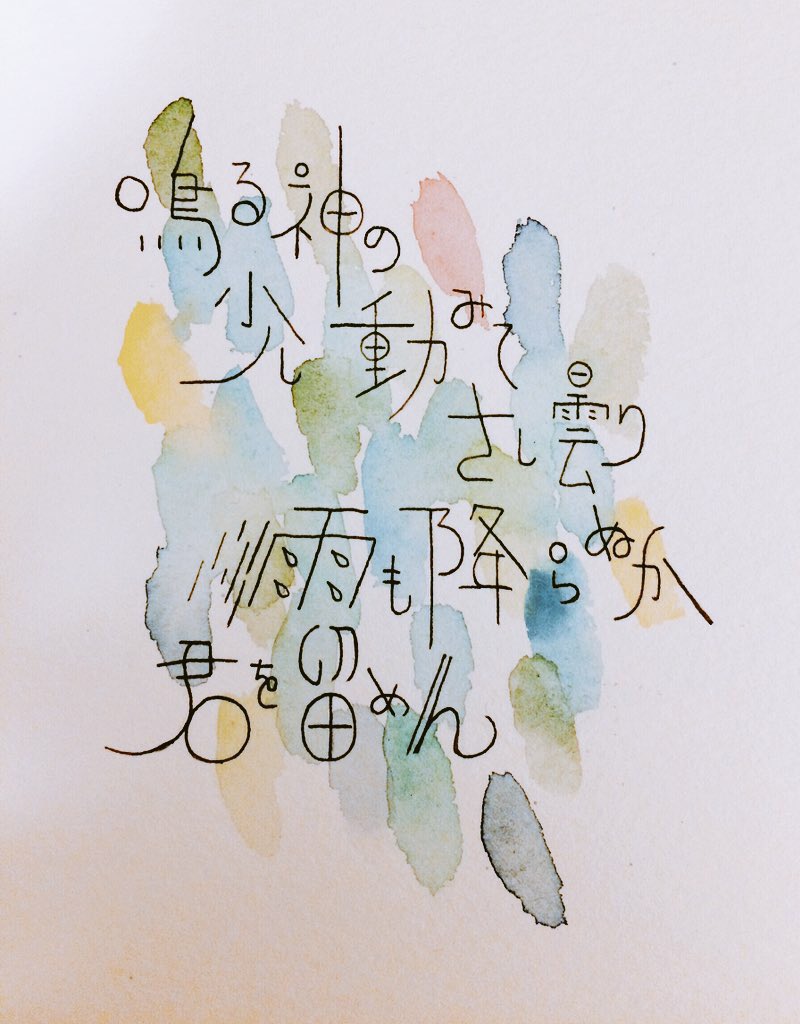 鳴る神の
少し動みて
さし曇り
雨も降らぬか
君を留めん